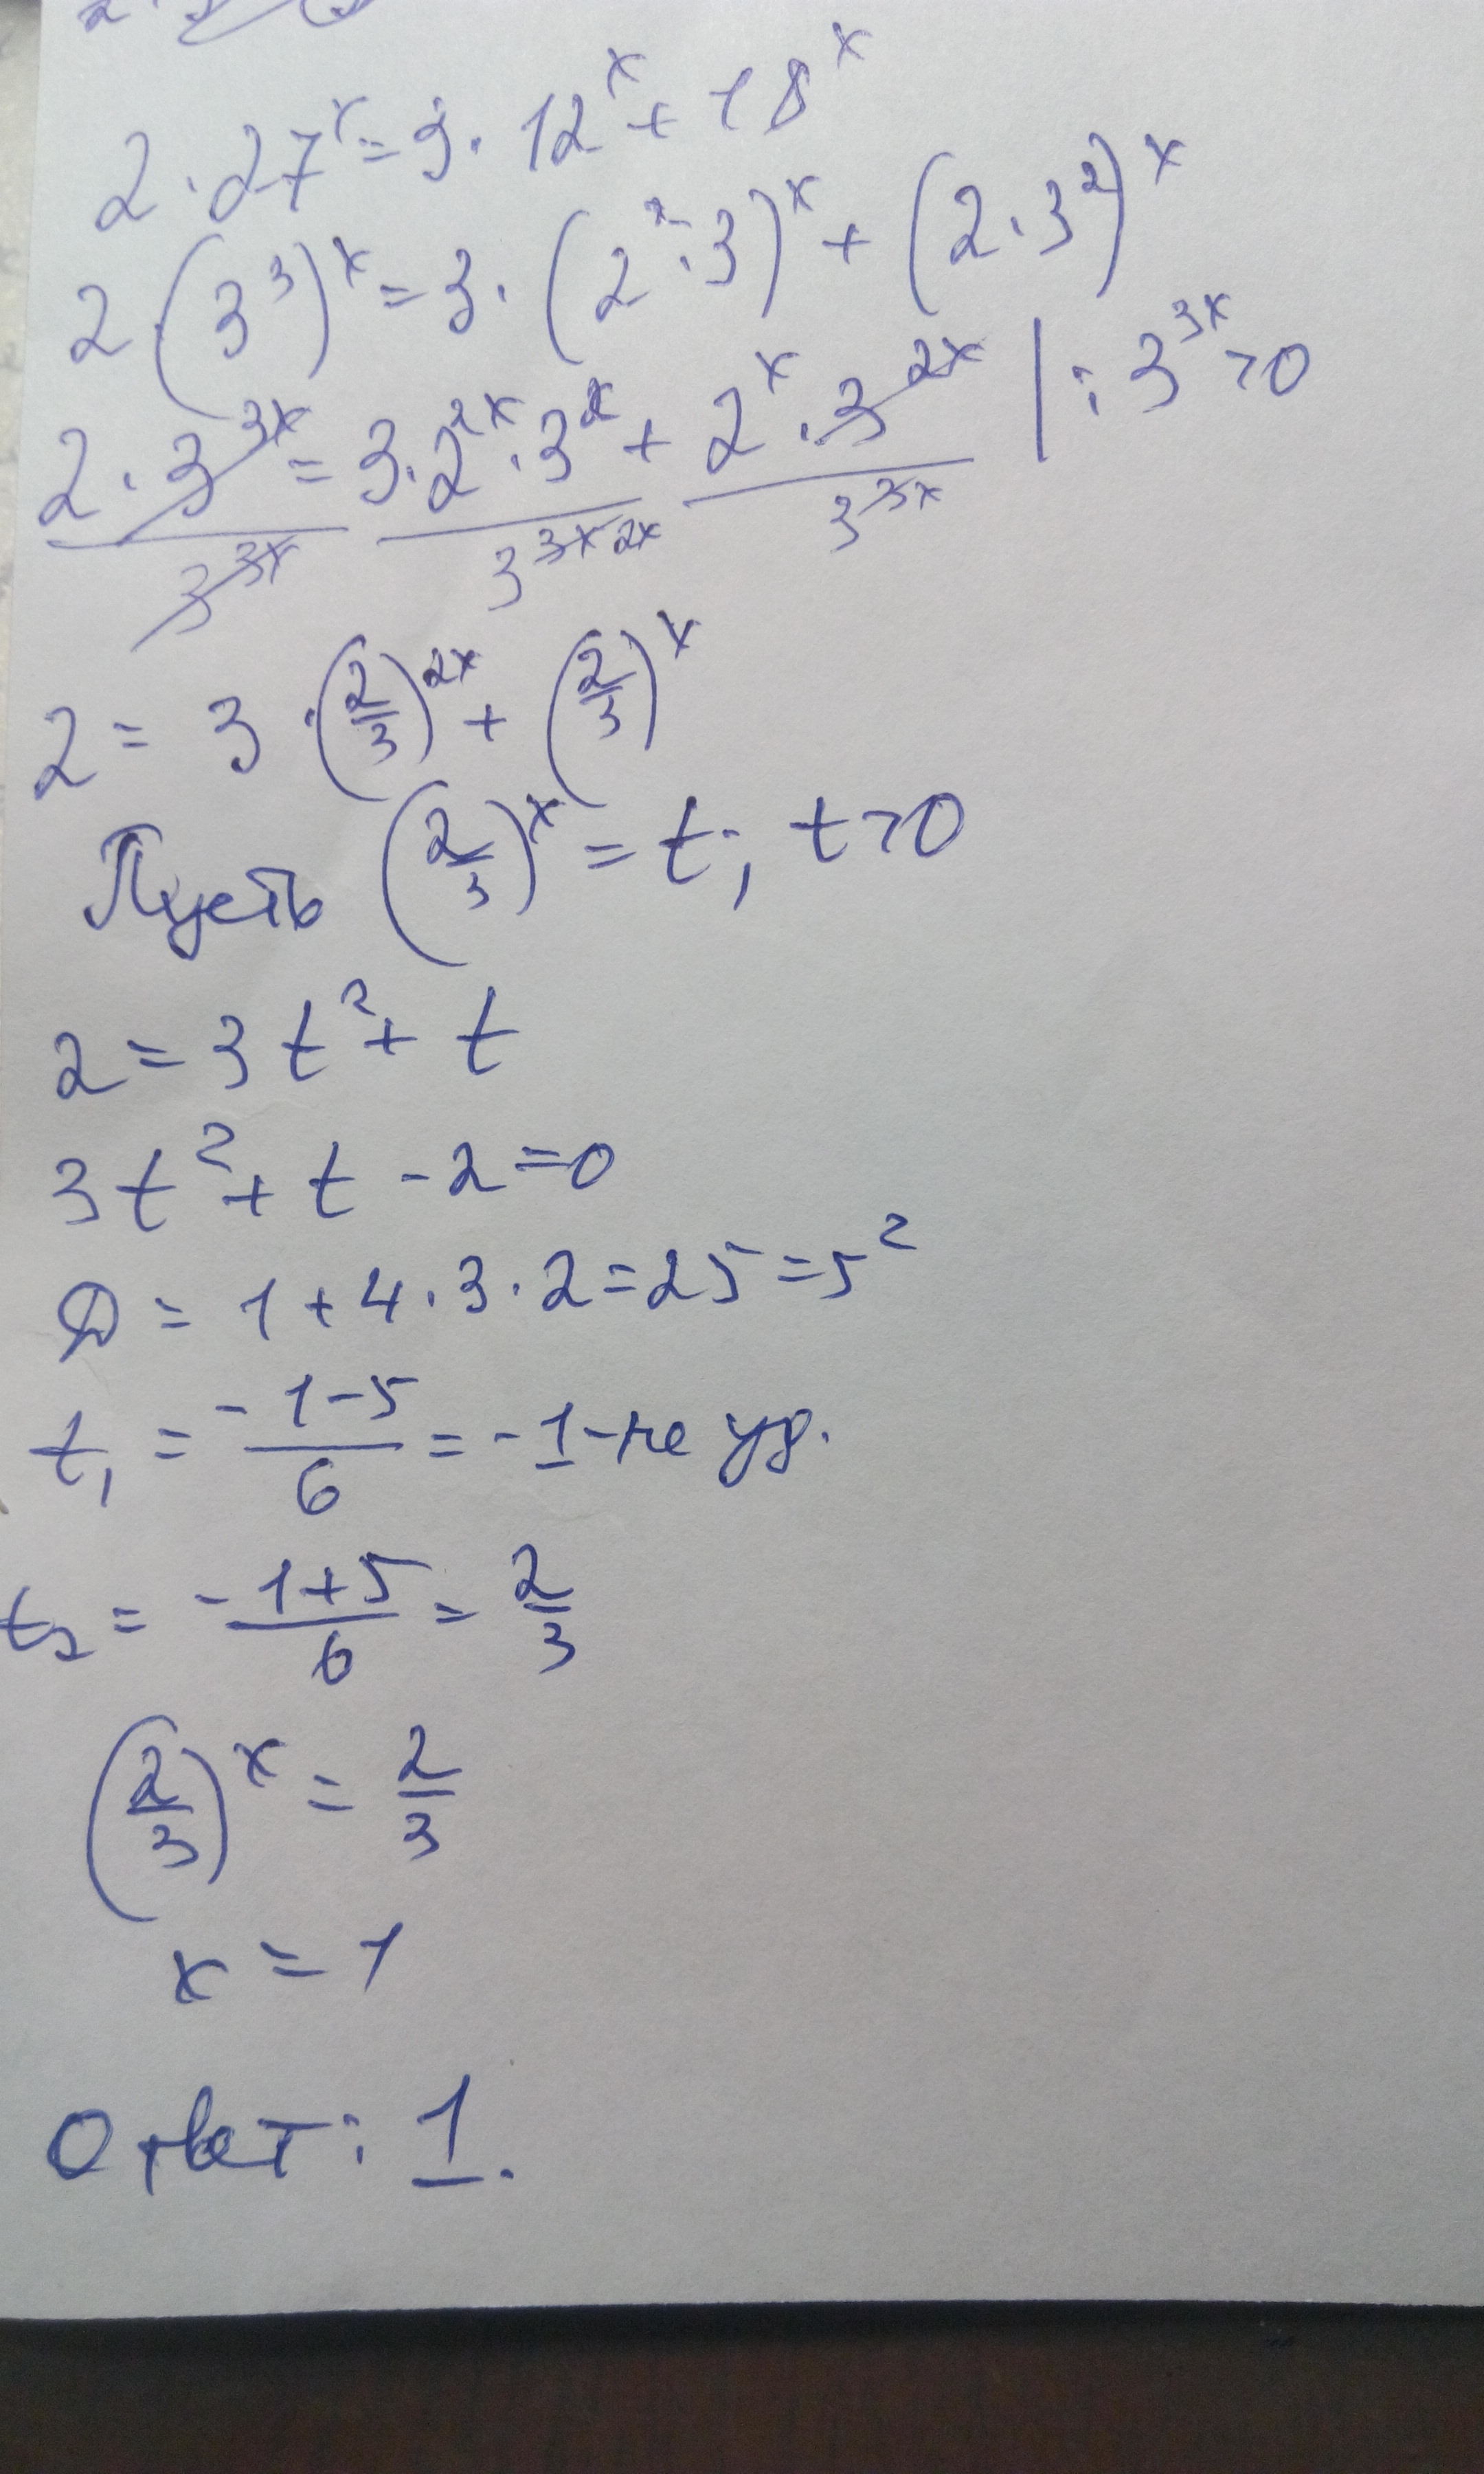 2 · 27^x = 3 · 12^x + 18^x
2 · (3^3)^x = 3 · (2^2 · 3)^x + (2 · 3^2)^x
2 · 3^3x / 3^3x = 3 · 2^2x · 3^x / 3^3x 2x + 2^x · 3^2x / 3^3x | : 3^3x > 0
2 = 3 · (2/3)^2x + (2/3)^x
Пусть (2/3)^x = t; t > 0
2 = 3t^2 + t
3t^2 + t - 2 = 0
D = 1 + 4 · 3 · 2 = 25 = 5^2
t_1 = -1-5 / 6 = -1 - не уд.
t_2 = -1+5 / 6 = 2/3
(2/3)^x = 2/3
x = 1
Ответ: 1.